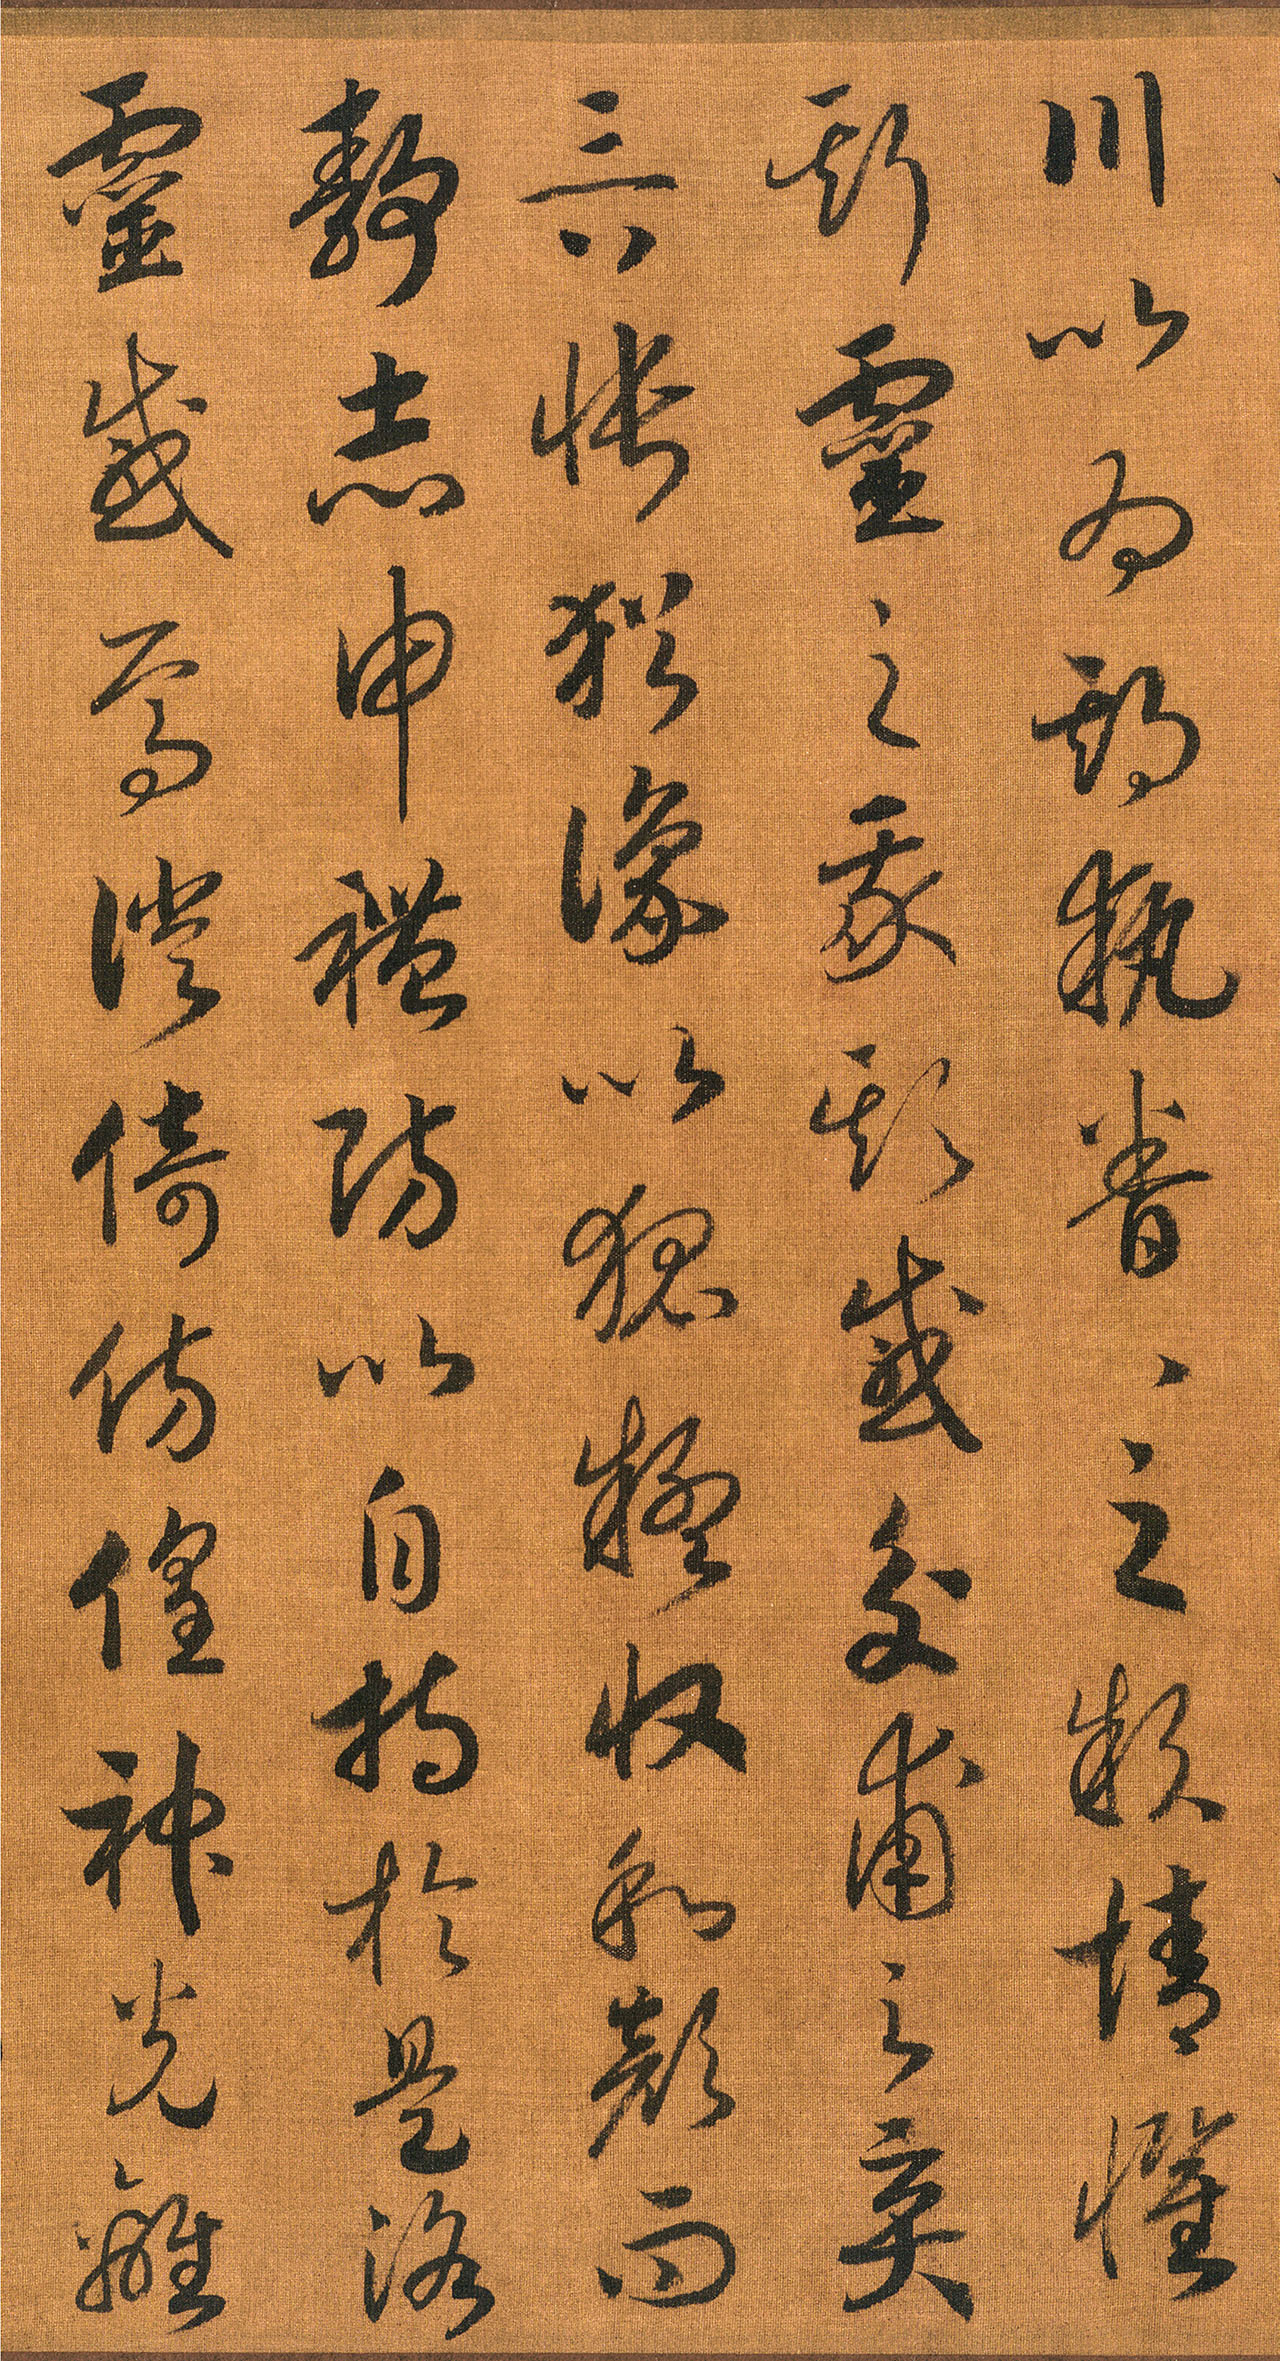 川以為期執眷〻之款情懼
斯靈之我欺感交甫之棄
言悵猶豫以狐疑收和顏而
靜志申禮防以自持於是洛
靈感焉徙倚彷徨神光離